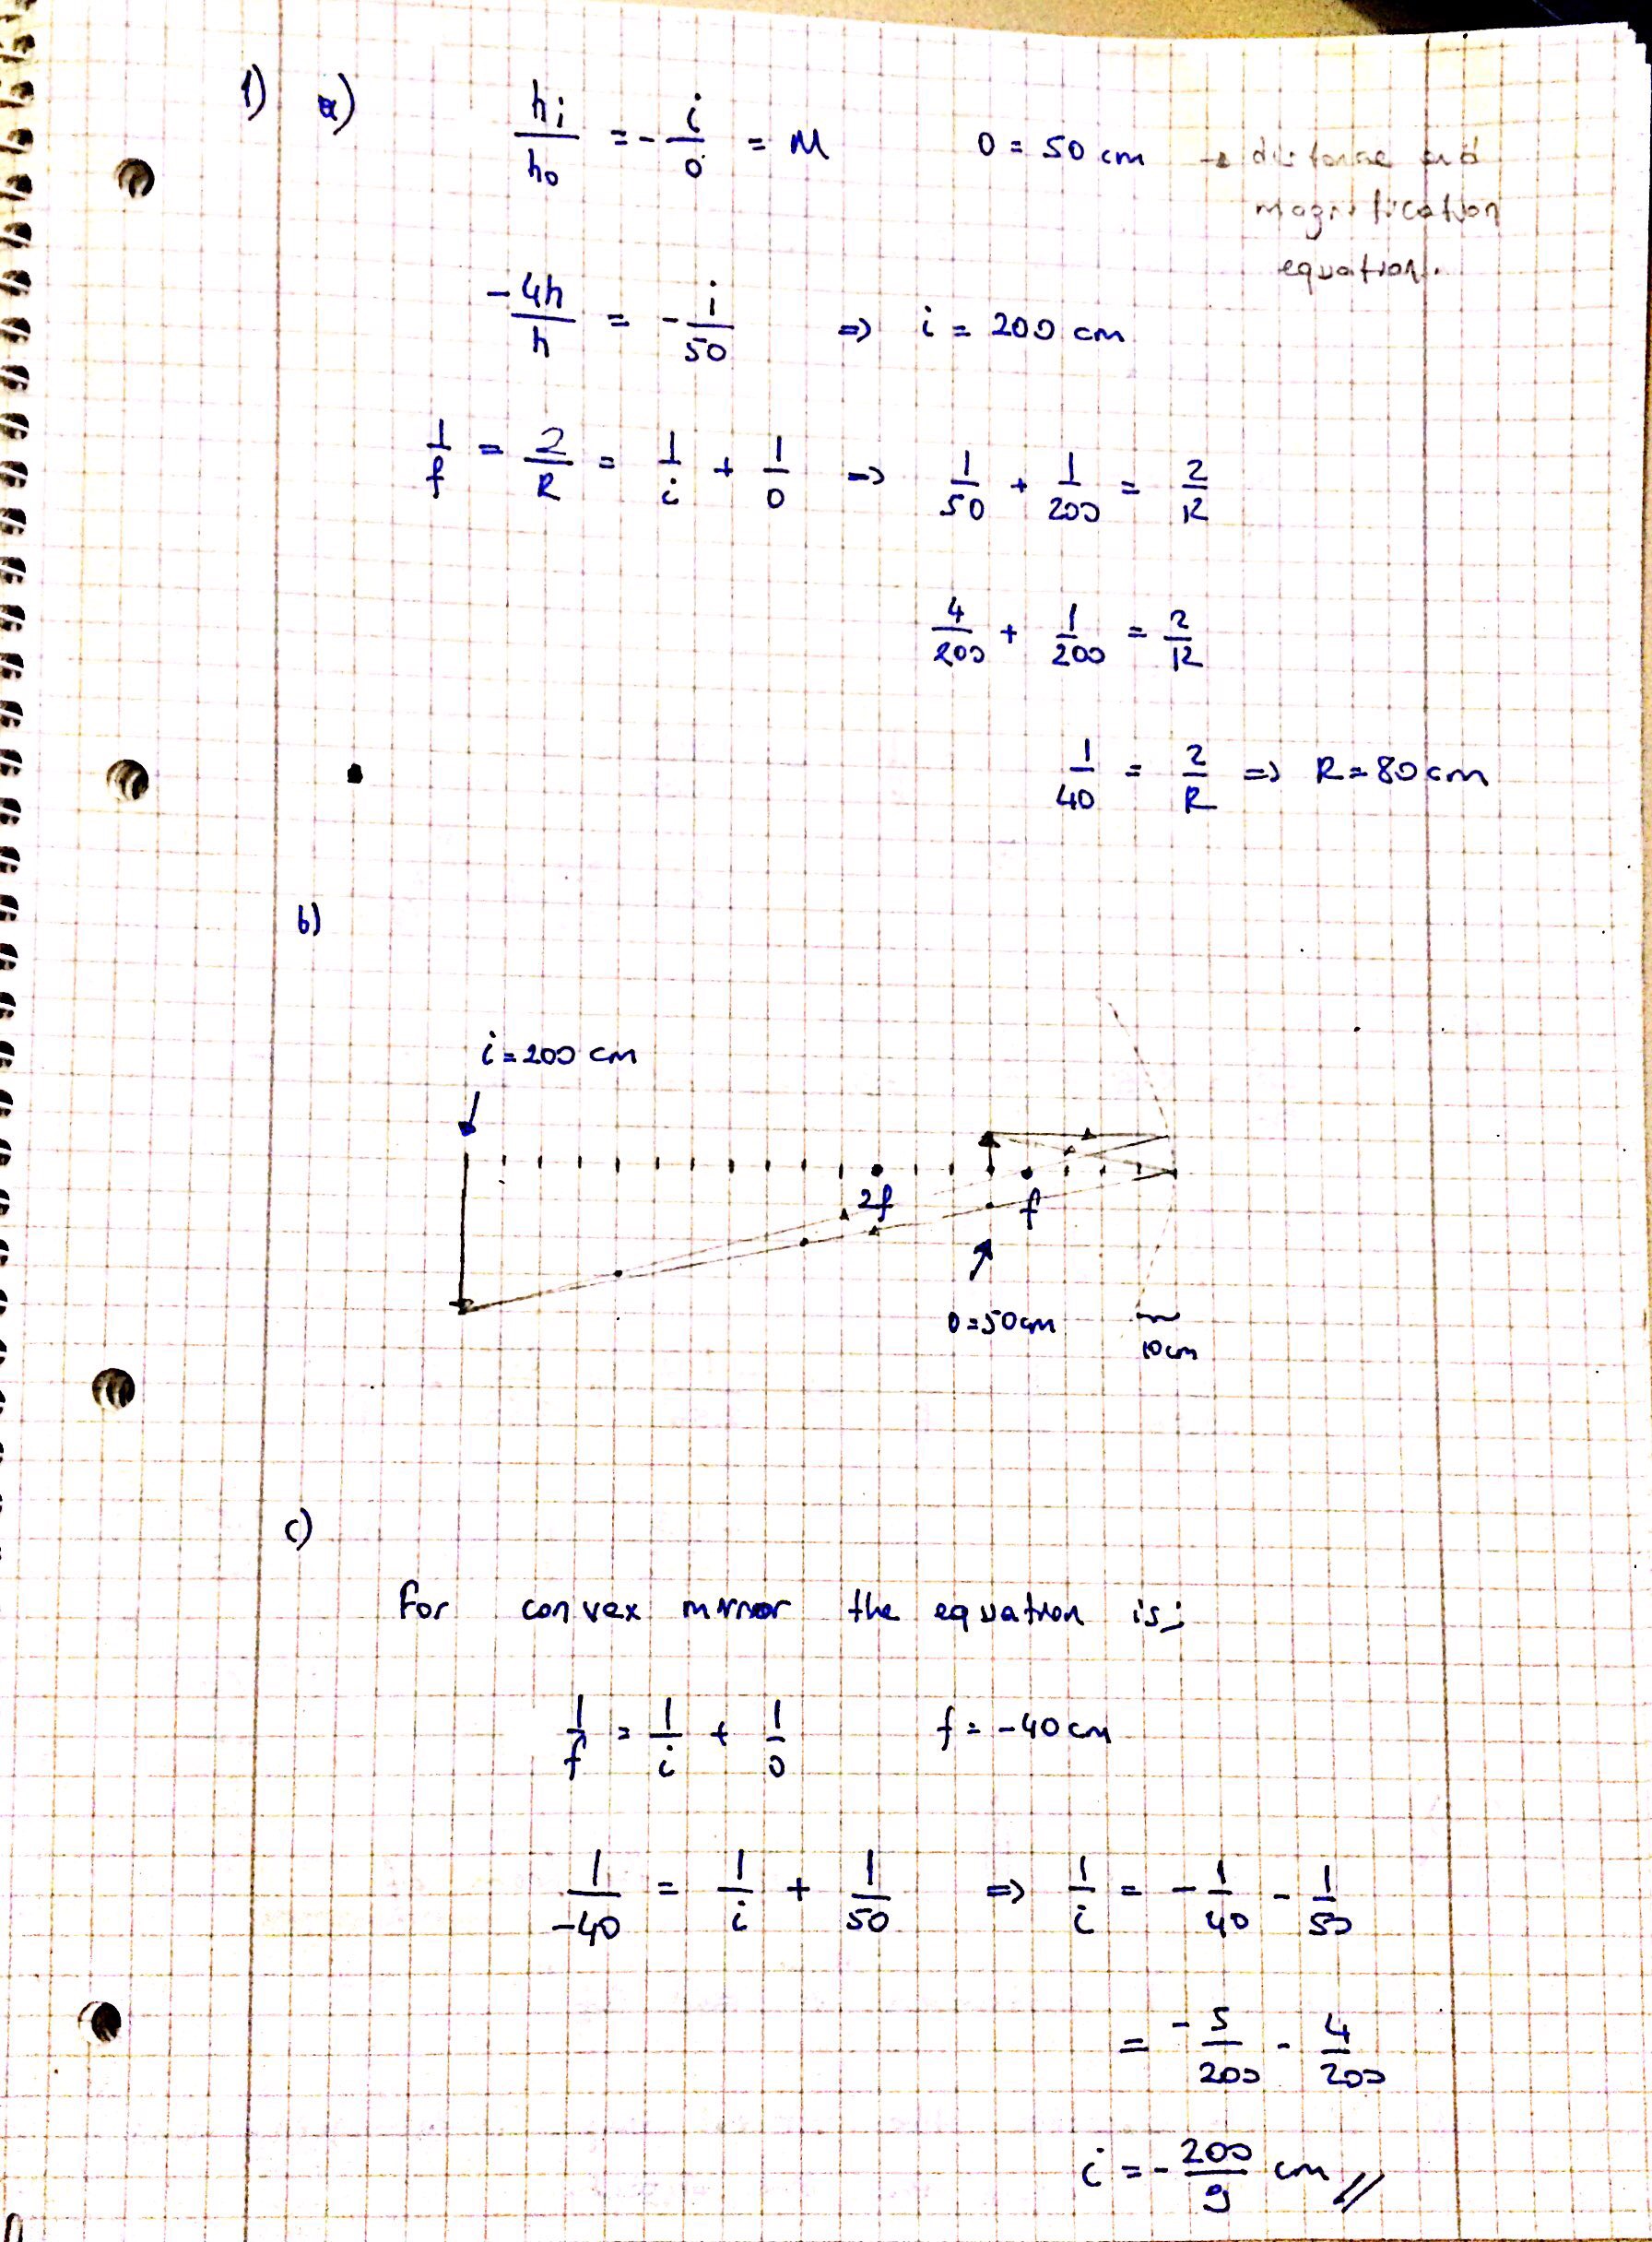 1) a) hi/ho = - i/o = M O = 50 cm → distance and
magnification
equation.
-4h/h = - i/50 => i = 200 cm
1/f = 2/R = 1/i + 1/o => 1/50 + 1/200 = 2/R
4/200 + 1/200 = 2/R
1/40 = 2/R => R = 80 cm
b)
i = 200 cm
2f f
O = 50 cm
10 cm
c)
for convex mirror the equation is;
1/f = 1/i + 1/o f = -40 cm
1/-40 = 1/i + 1/50 => 1/i = - 1/40 - 1/50
= - 5/200 - 4/200
i = - 200/9 cm //